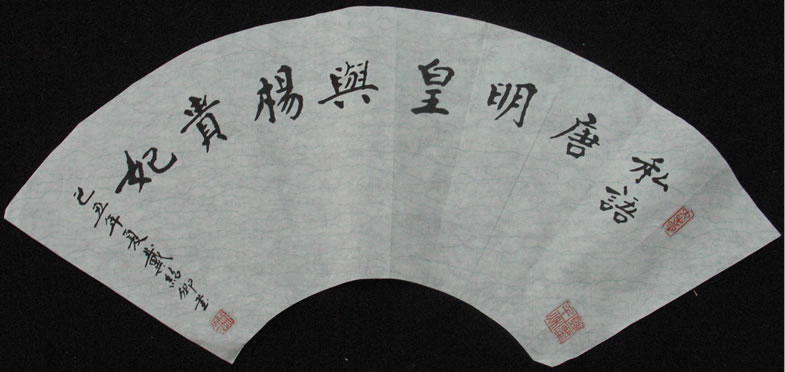 私語
唐明皇與楊貴妃
己丑年夏戴紹卿書